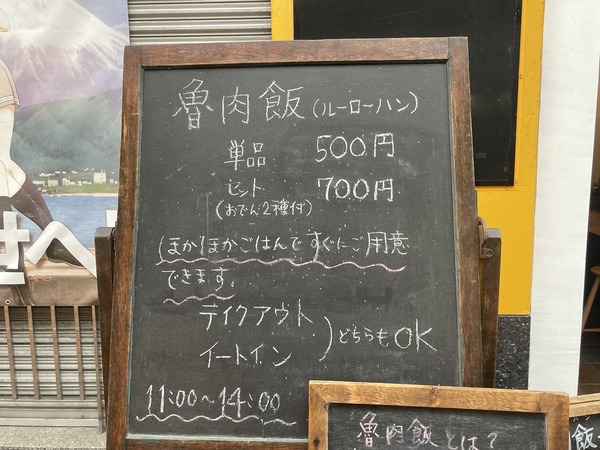 魯肉飯(ルーローハン)
単品 500円
セット 700円
(おでん2種付)
ほかほかごはんですぐにご用意
できます。
テイクアウト
イートイン
)どちらもOK
11:00~14:00
魯肉飯とは?
飯
せへ